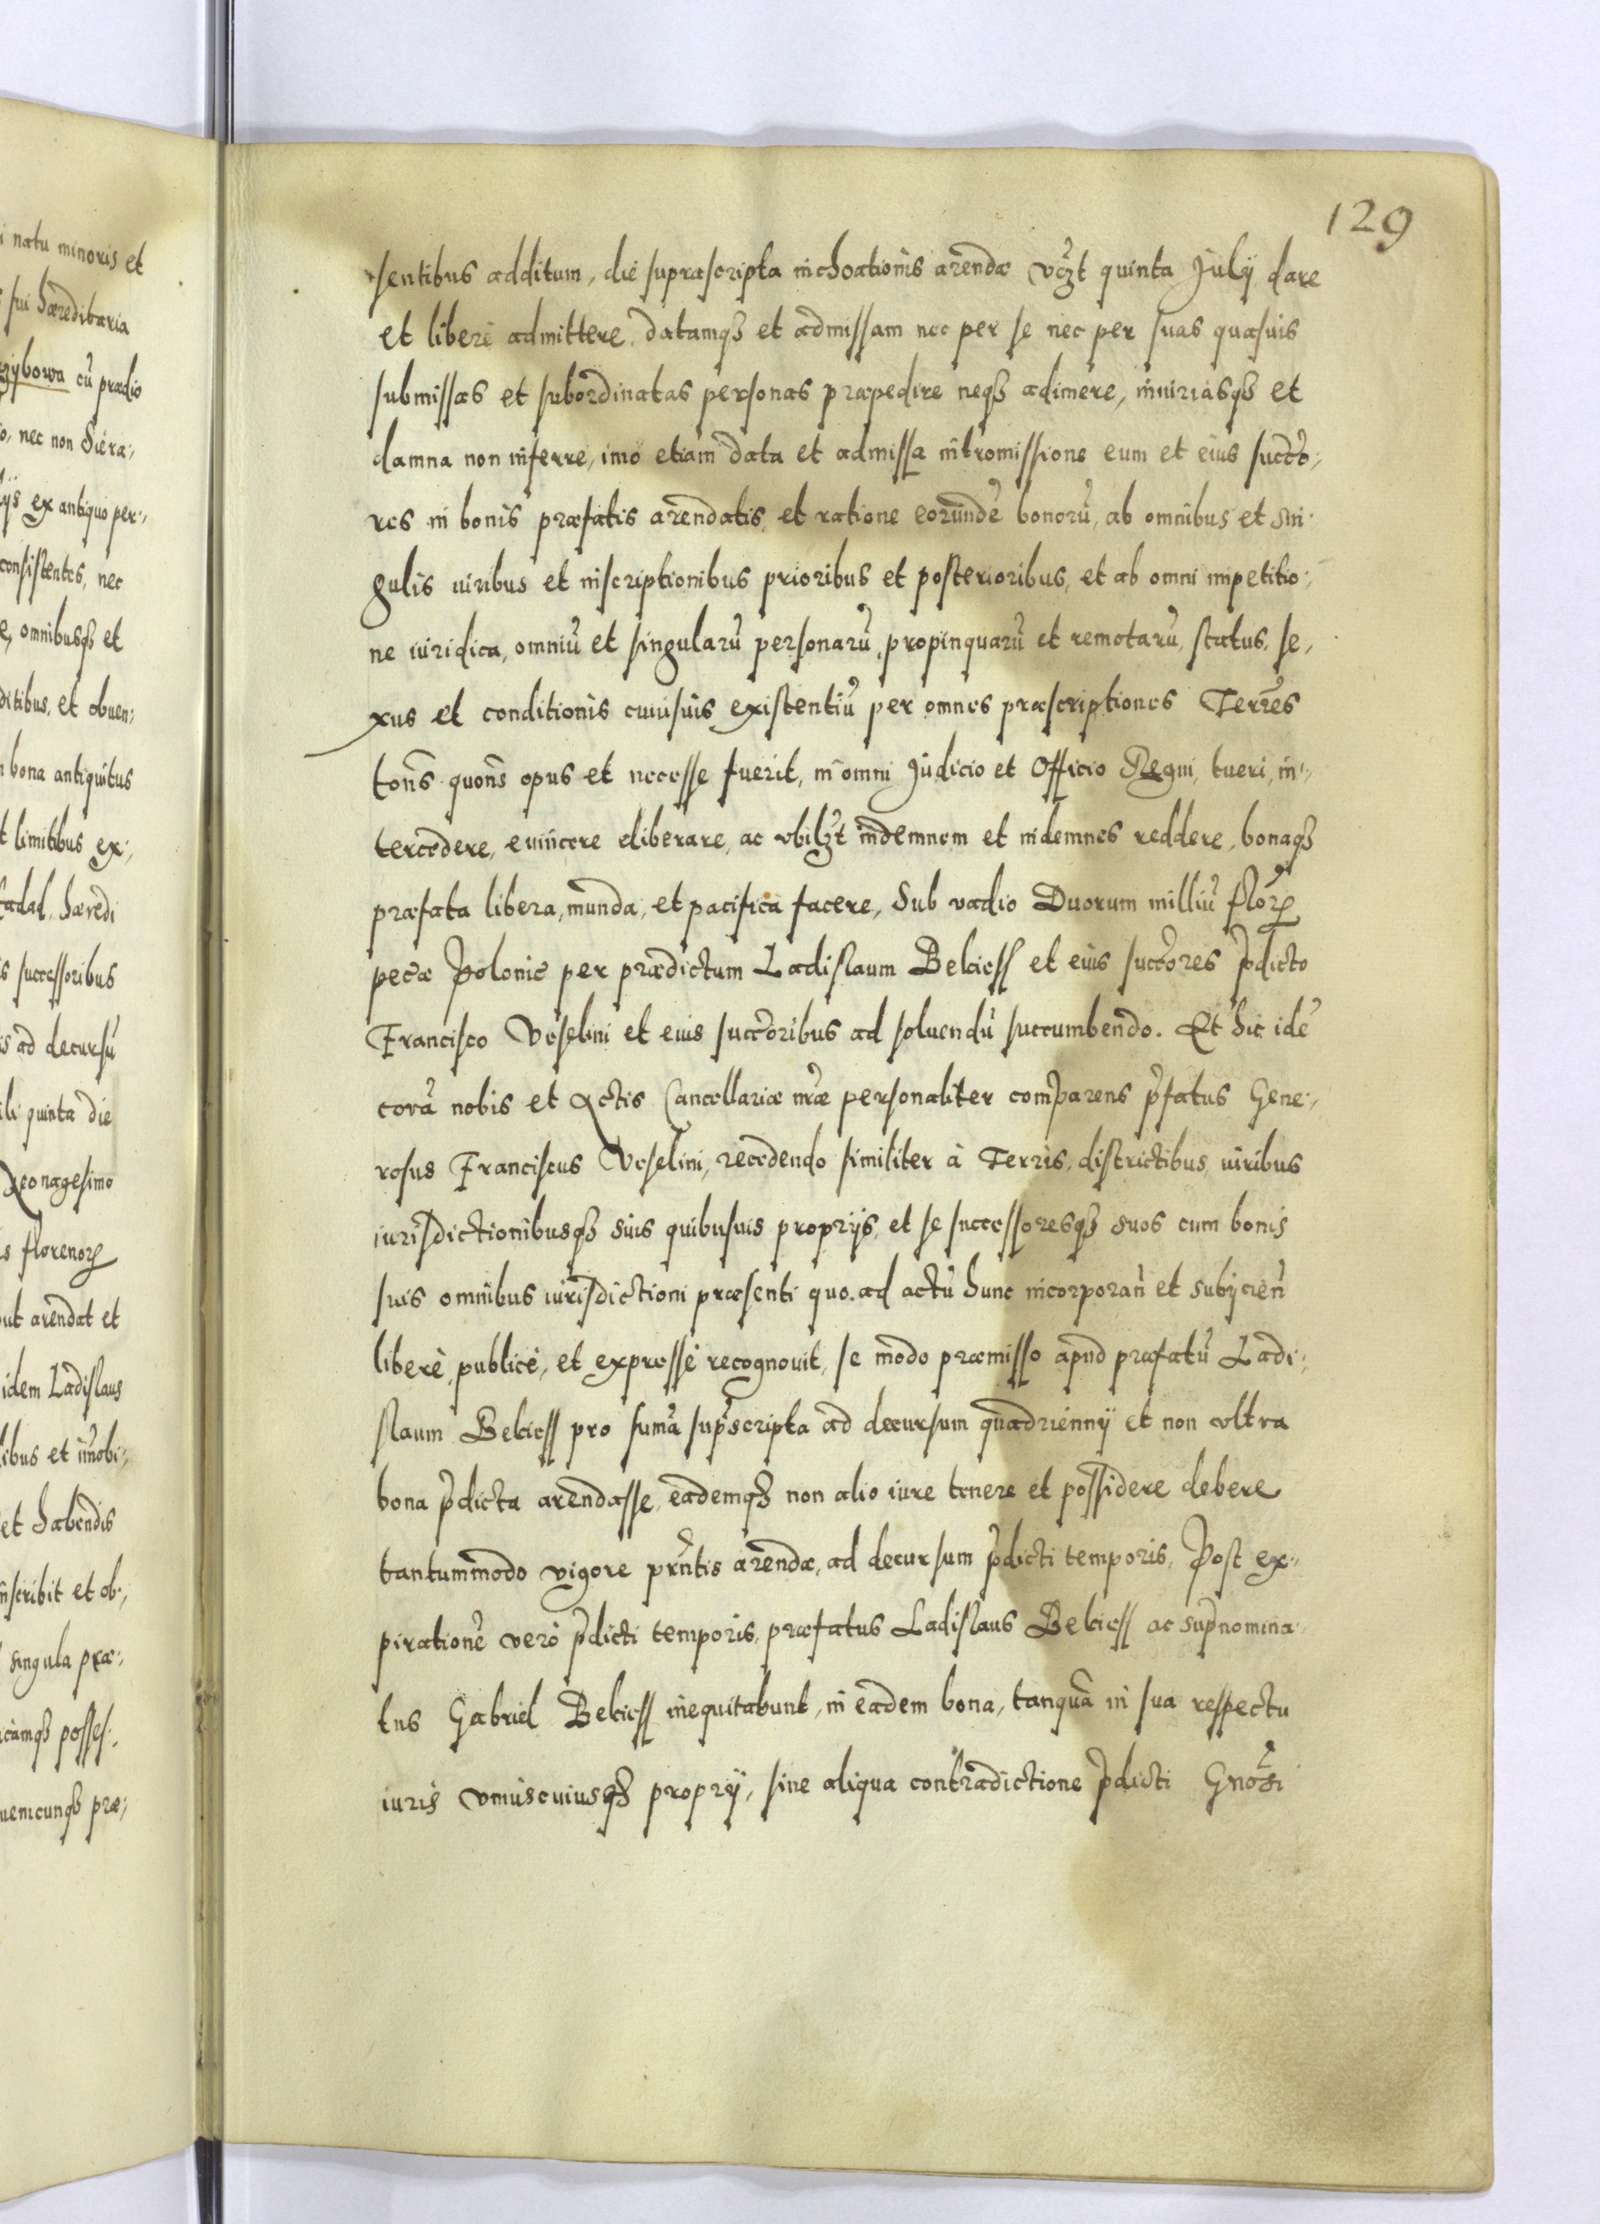 i natu minoris et
sui hæreditaria
rzybowa cū prædio
o, nec non Siera,
ijs ex antiquo per,
consistentes, nec
e, omnibusq₃ et
ditibus, et obuen,
bona antiquitus
t limitibus ex,
hæredi
s successoribus
is ad decursū
quinta die
nonagesimo
s florenorꝝ
out arendat et
idem Ladislaus
libus et im̄obi,
et habendis
nscribit et ob,
singula præ,
camq₃ posses,
uemcunq₃ præ,
129
sentibus additum, die suprascripta inchoationis arendæ vc̄zt quinta Julÿ dare
et liberè admittere, datamq₃ et admissam nec per se nec per suas quasuis
submissas et subordinatas personas præpedire neq₃ adimere, iniuriasq₃ et
damna non inferre, imò etiam data et admissa intromissione eum et eius succ̄o,
res in bonis præfatis arendatis, et ratione eorundē bonorū, ab omnibus et sin,
gulis iuribus et inscriptionibus prioribus et posterioribus, et ab omni impetitio,
ne iuridica, omniū et singularū personarū, propinquarū et remotarū, status, se,
xus et conditionis cuiusuis existentiū per omnes præscriptiones Terr̄es
ton̄s quon̄s opus et necesse fuerit, in omni Judicio et Officio Regni, tueri, in,
tercedere, euincere eliberare, ac vbilz̄t indemnem et indemnes reddere, bonaq₃
præfata libera, munda, et pacifica facere, Sub vadio Duorum milliū flōrꝝ
pec̄æ Polonic̄ per prædictum Ladislaum Bekiess et eius succ̄ores p̄dicto
Francisco Veselini et eius succ̄oribus ad soluendū succumbendo. Et hic idē
corā nobis et Actis Cancellariæ nr̄æ personaliter comparens p̄fatus Gene,
rosus Franciscus Veselini, recedendo similiter à Terris, districtibus, iuribus
iurisdictionibusq₃ suis quibusuis proprijs, et se successoresq₃ suos cum bonis
suis omnibus iurisdictioni præsenti quo.ad actū hunc incorporan̄ et subijcien̄
liberè, publicè, et expressè recognouit, se modo præmisso apud præfatū Ladi,
slaum Bekiess pro sum̄a sup̄scripta ad decursum quadriennÿ et non vltra
bona p̄dicta arendasse, eademq₃ non alio iure tenere et possidere debere
tantummodo vigore prn̄tis arendæ, ad decursum p̄dicti temporis, Post ex,
pirationē verò p̄dicti temporis, præfatus Ladislaus Bekiess ac sup̄nomina,
tus Gabriel Bekiess inequitabunt, in eadem bona, tanquā in sua respectu
iuris vniuscuiusq₃ proprÿ, sine aliqua contradictione p̄dicti Gnōsi